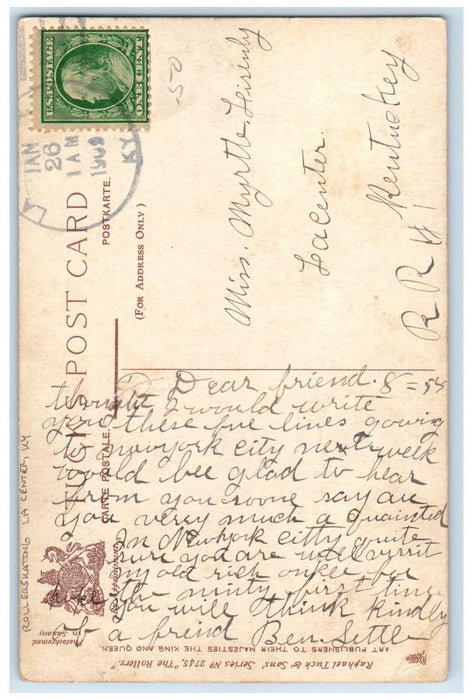 U.S. POSTAGE
ONE CENT
LA
JAN
26
1 AM
1909
KY
50
TUCK'S POST CARD
CARTE POSTALE.
POSTKARTE.
(FOR ADDRESS ONLY)
Miss. Myrtle Leisenby
Lacenter.
Kentuckey
R R #1
Dear friend. 8=54
thought I would write
you these fue lines gowing
to newyork city next week
would bee glad to hear
from you soone say are
you verry much a quainted
In Newyork citty quite
sure you are will vissit
my old rich onkle
hope you
you will think kindly
of a freind Ben Settle
ROLLERSKATING LA CENTER, KY
Photochromed
in Saxony
Raphael Tuck & Sons' Series No 2745, "The Rollers."
ART PUBLISHERS TO THEIR MAJESTIES THE KING AND QUEEN.